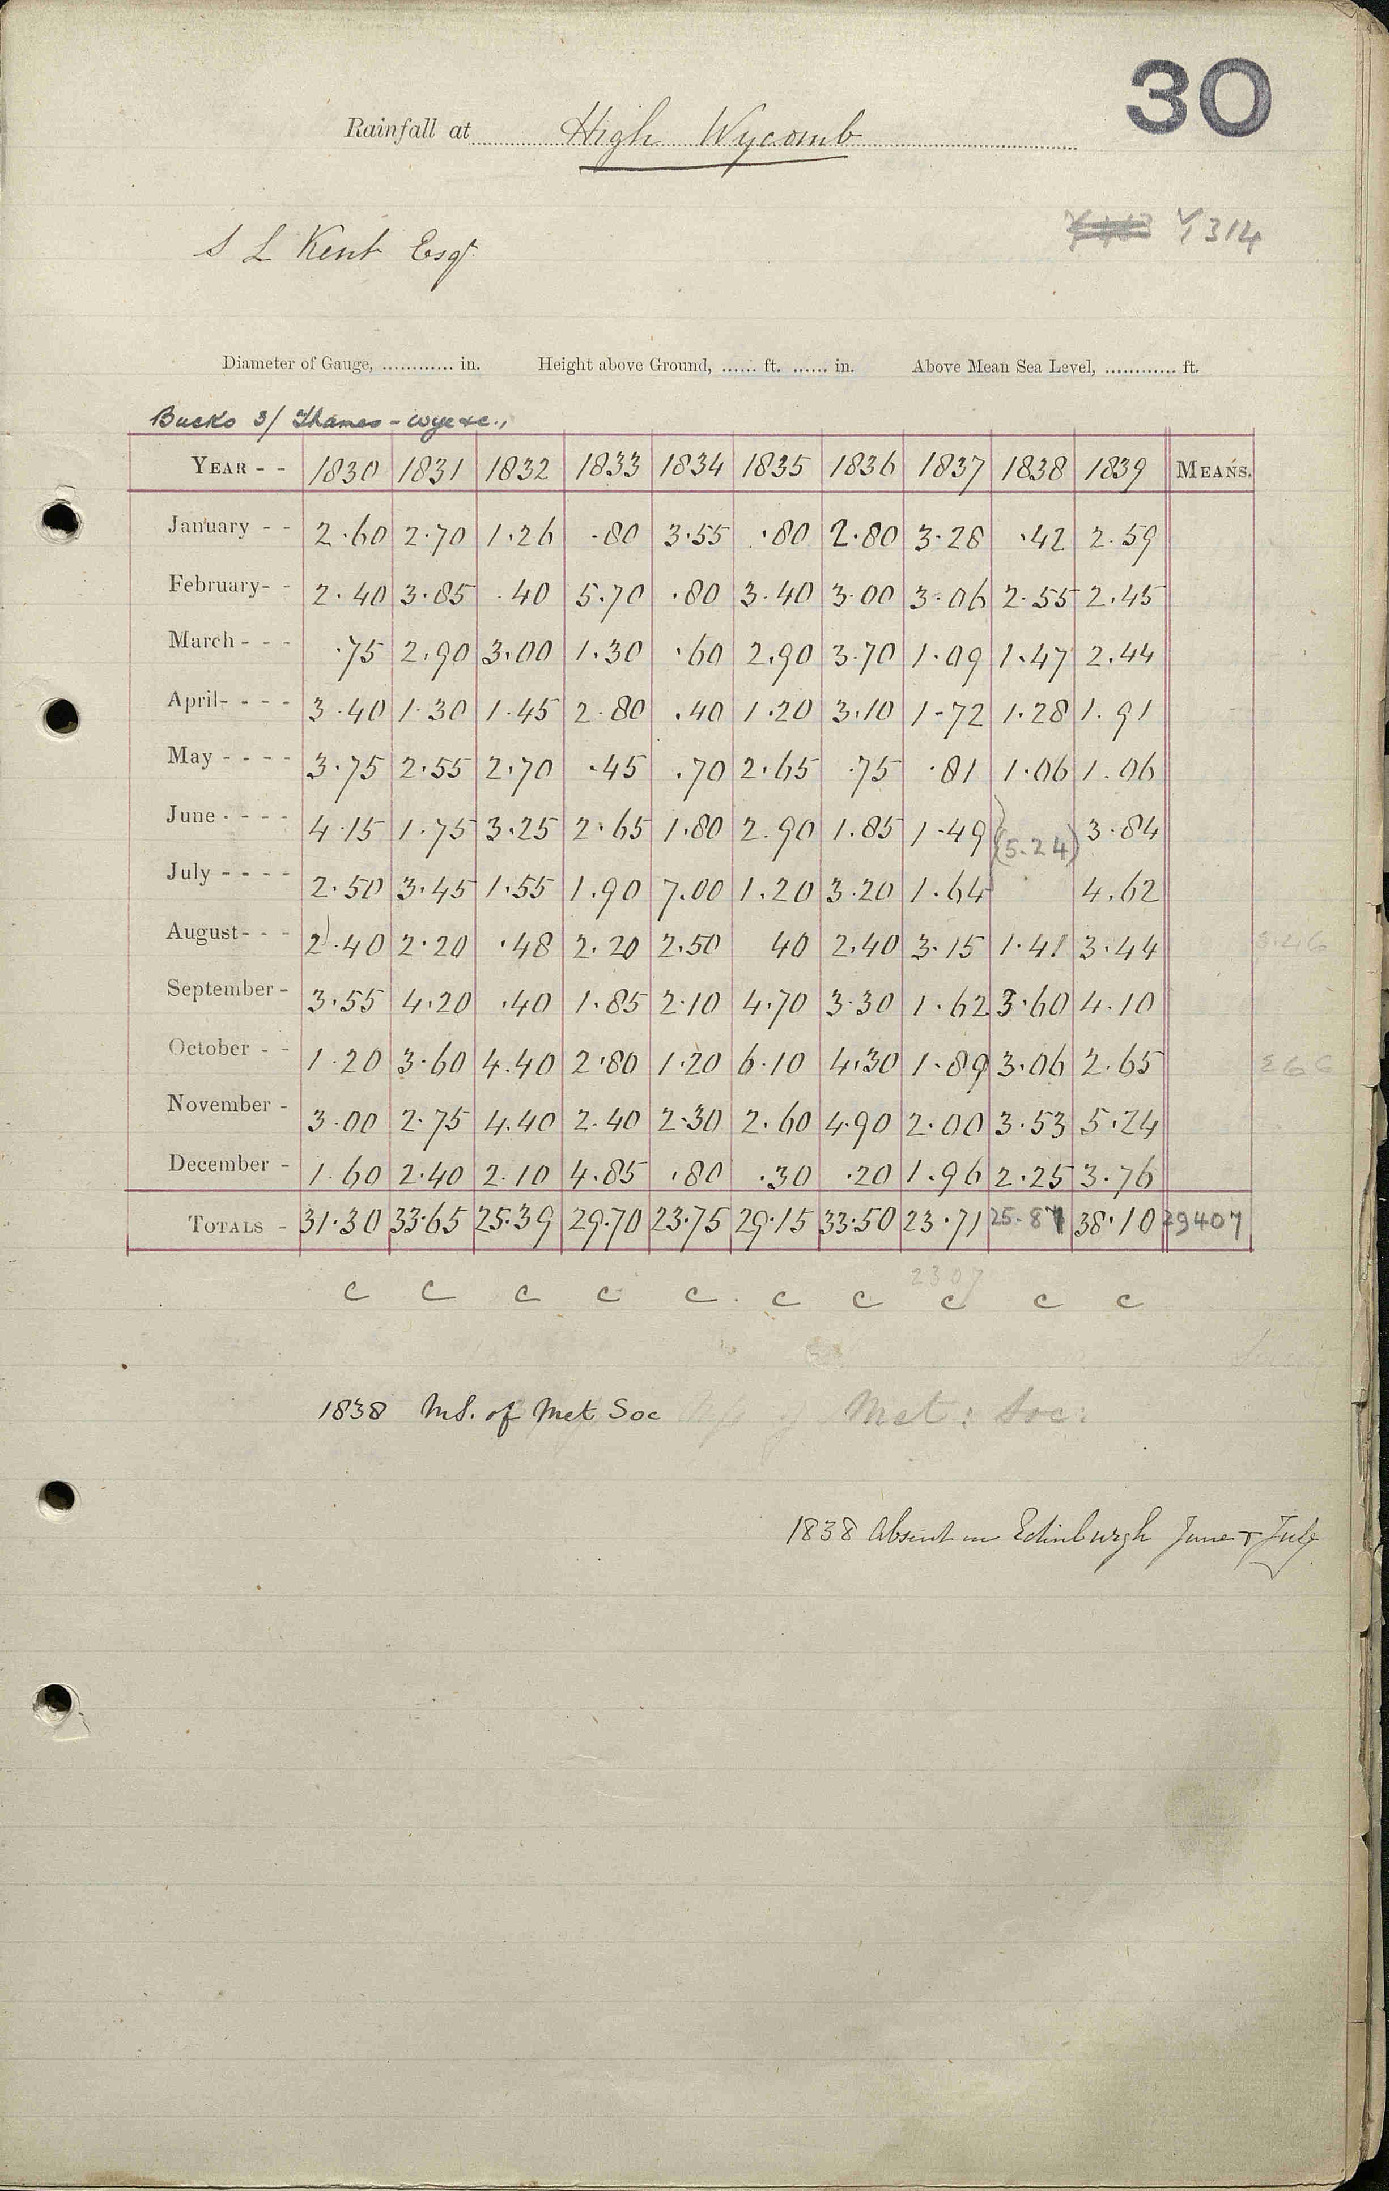 30
Rainfall at High Wycomb
Y 314
S L Kent Esqr
Diameter of Gauge, ............ in. Height above Ground, ...... ft. ...... in. Above Mean Sea Level, ............ ft.
Bucks 3/ Thames - Wye &c.,
YEAR - - 1830 1831 1832 1833 1834 1835 1836 1837 1838 1839 MEANS.
January - - 2.60 2.70 1.26 .80 3.55 .80 2.80 3.28 .42 2.59
February- - 2.40 3.85 .40 5.70 .80 3.40 3.00 3.06 2.55 2.45
March - - - .75 2.90 3.00 1.30 .60 2.90 3.70 1.09 1.47 2.44
April- - - - 3.40 1.30 1.45 2.80 .40 1.20 3.10 1.72 1.28 1.91
May - - - - 3.75 2.55 2.70 .45 .70 2.65 .75 .81 1.06 1.06
June - - - - 4.15 1.75 3.25 2.65 1.80 2.90 1.85 1.49 (5.24) 3.84
July - - - - 2.50 3.45 1.55 1.90 7.00 1.20 3.20 1.64 4.62
August- - - 2.40 2.20 .48 2.20 2.50 40 2.40 3.15 1.41 3.44
September - 3.55 4.20 .40 1.85 2.10 4.70 3.30 1.62 3.60 4.10
October - - 1.20 3.60 4.40 2.80 1.20 6.10 4.30 1.89 3.06 2.65
November - 3.00 2.75 4.40 2.40 2.30 2.60 4.90 2.00 3.53 5.24
December - 1.60 2.40 2.10 4.85 .80 .30 .20 1.96 2.25 3.76
TOTALS - 31.30 33.65 25.39 29.70 23.75 29.15 33.50 23.71 25.87 38.10 29407
2307
c c c c c c c c c c
1838 MS. of Met Soc Met: Soc:
1838 Absent in Edinburgh June & July